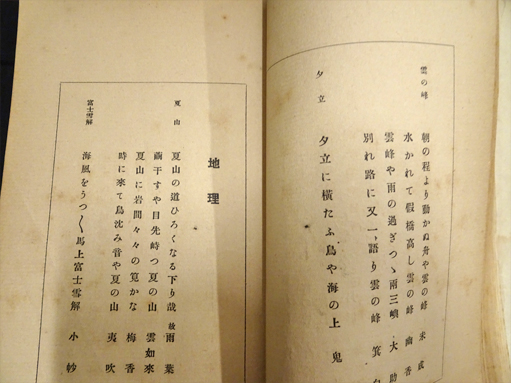 雲の峰
朝の程より動かぬ舟や雲の峰 米
水かれて假橋高し雲の峰 幽香
雲峰や雨の過ぎつゝ南三 大助
別れ路に又一語り雲の峰 箕
夕立
夕立に横たふ鳥や海の上 鬼
地理
夏山
夏山の道ひろくなる下り哉 故雨葉
繭干すや目先峙つ夏の山 雲如來
夏山に岩間々々の筧かな 梅香
時に來て鳥沈み音や夏の山 夷吹
富士雪解
海風をうつ〱馬上富士雪解 小妙